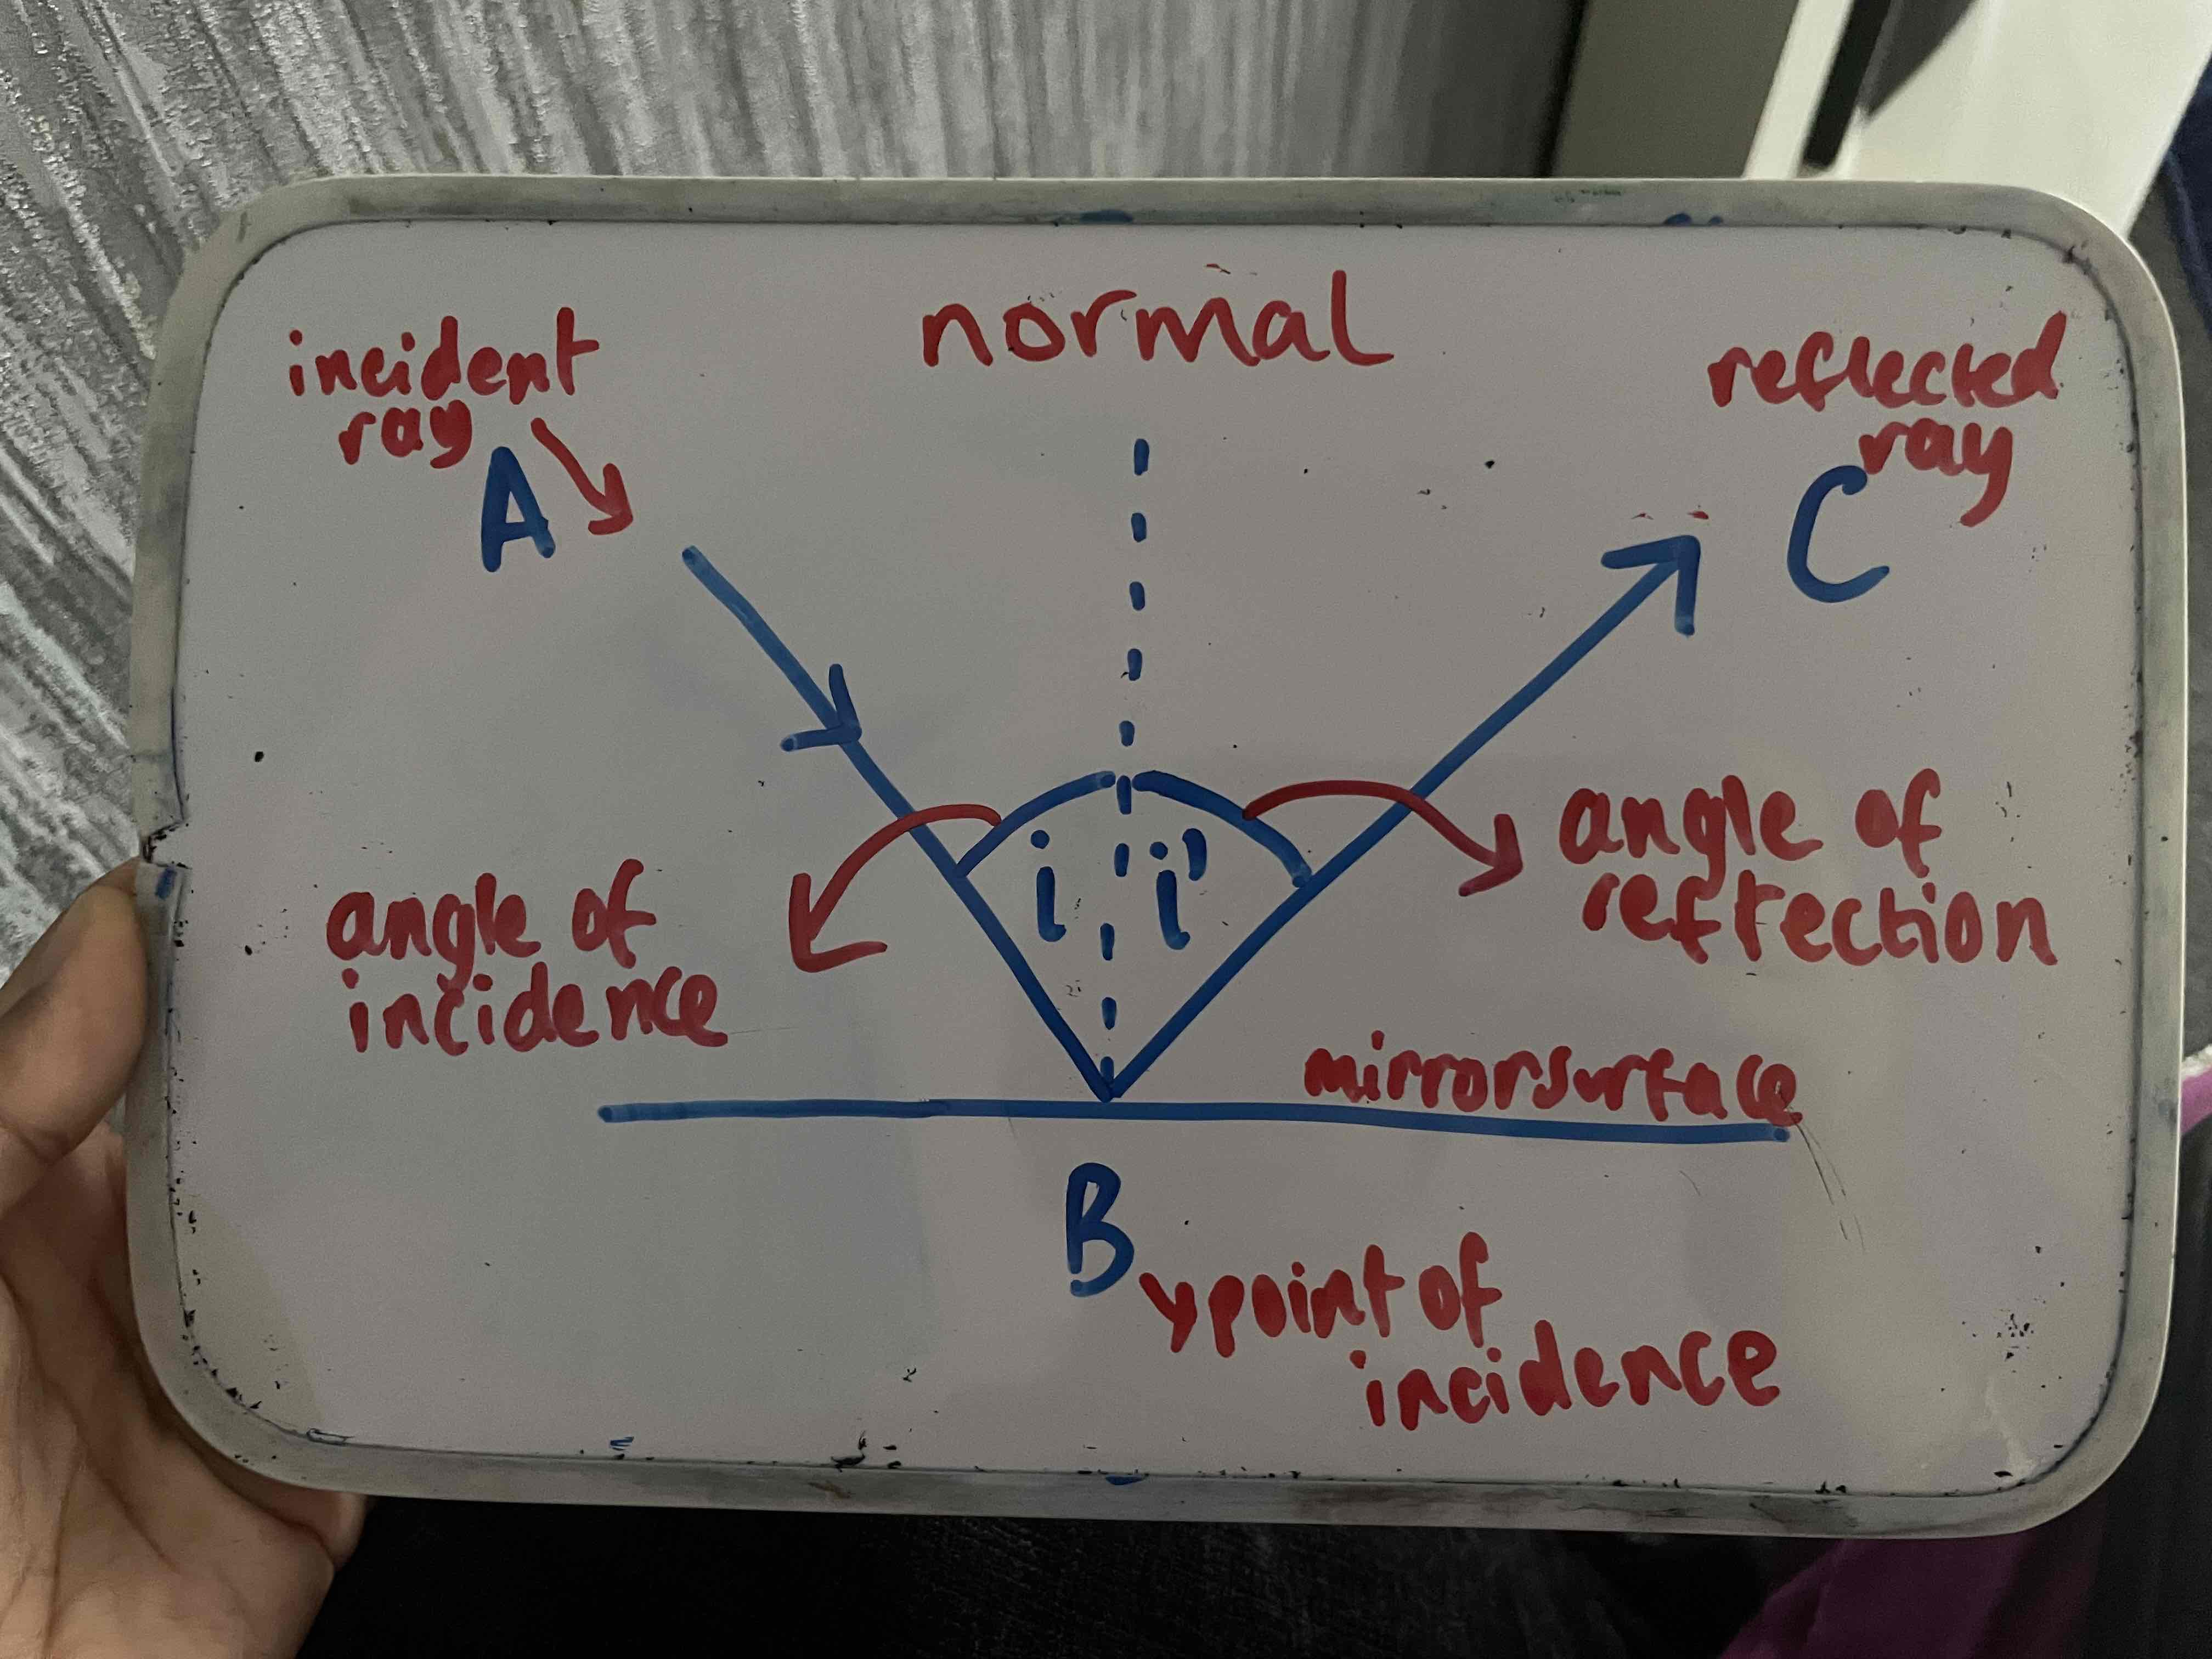 normal
incident
ray
A
reflected
ray
C
i
i'
angle of
incidence
angle of
reflection
mirror surface
B
point of
incidence